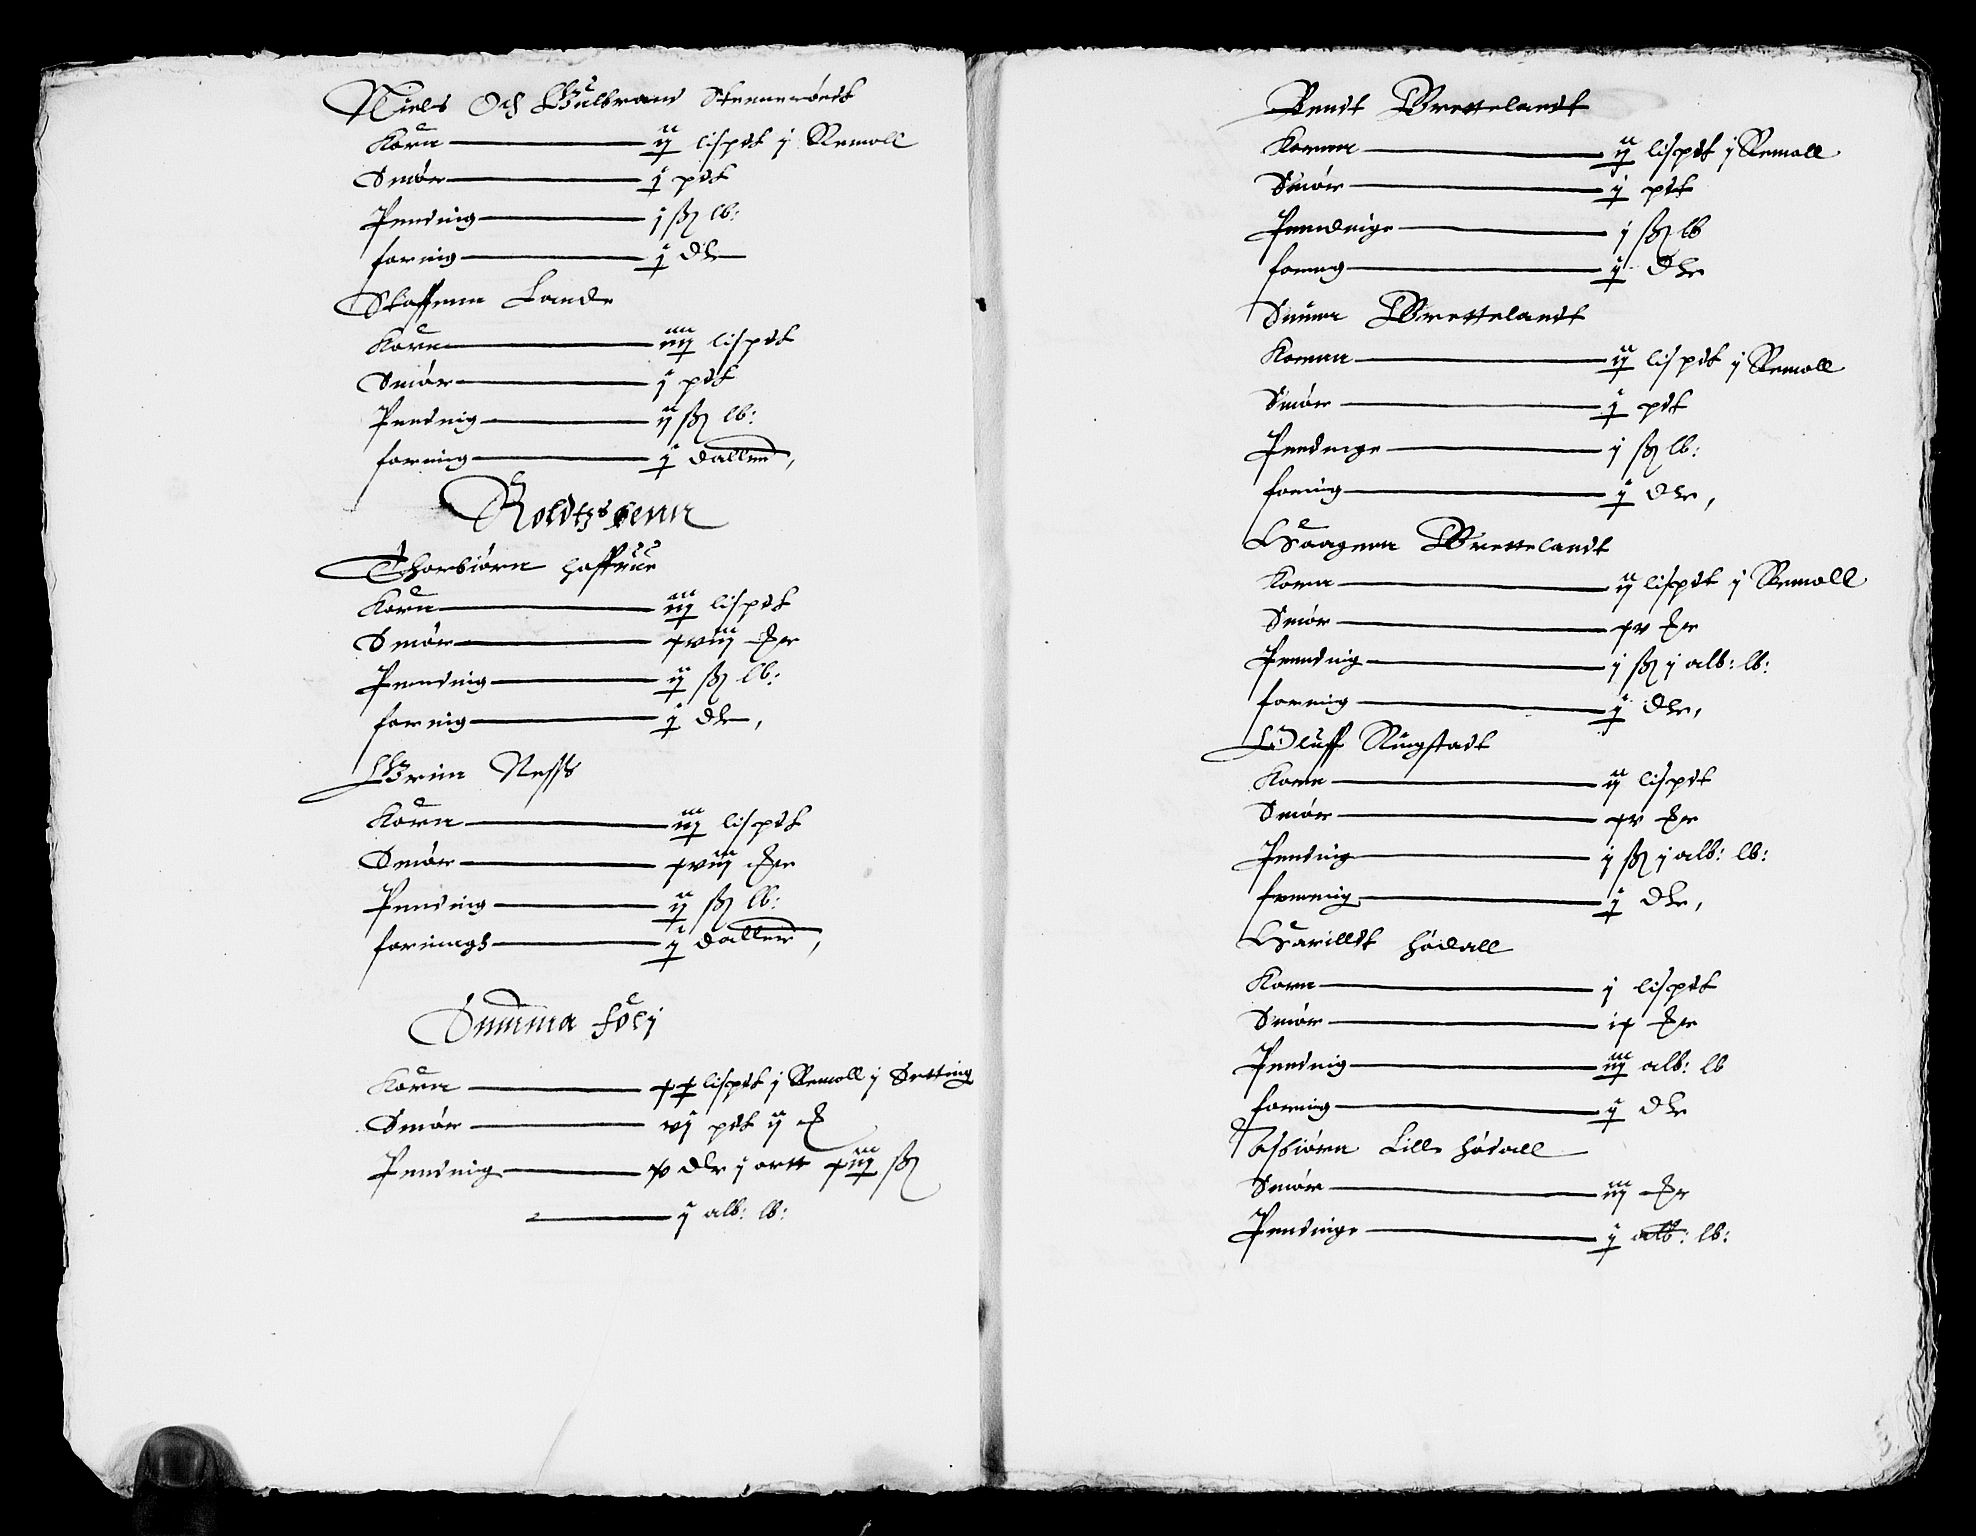 Niels Och Gulbrand Stennerødt
Korn — ij lispdt j Remoll
Smør — j pdt
Penning — j ß lb:
foring — j dlr
Staffenn Lande
Korn — iiij lispdt
Smør — j pdt
Penning — ij ß lb:
foring — j daller,
Thorbiørn
Korn — iij lispdt
Smør — xviij
Penning — ij ß lb:
foring — j dlr,
Grim Ness
Korn — iij lispdt
Smør — xviij
Penning — ij ß lb:
forings — j daller,
Summa folj
Korn — xx lispdt j Remoll j Setting
Smør — vj pdt ij
Penning — dlr j ortt xiij ß
— j alb: lb:
Bendt Brettelandt
Kornn — ij lispdt j Remoll
Smør — j pdt
Penndinge — j ß lb
foring — j dlr
Brettelandt
Kornn — ij lispdt j Remoll
Smør — j pdt
Pendinge — j ß lb:
foring — j dlr,
Haagenn Brettelandt
Korn — ij lispdt j Remoll
Smør — xv
Penning — j ß j alb: lb:
foring — j dlr,
Oluff Ringstadt
Korn — ij lispdt
Smør — xv
Pending — j ß j alb: lb:
foring — j dlr,
Harilldt Hødall
Korn — j lispdt
Smør — ix
Penning — iij alb: lb
foring — j dlr
Asbiørn Lille Hødall
Smør — iij
Pendinge — j alb: lb: